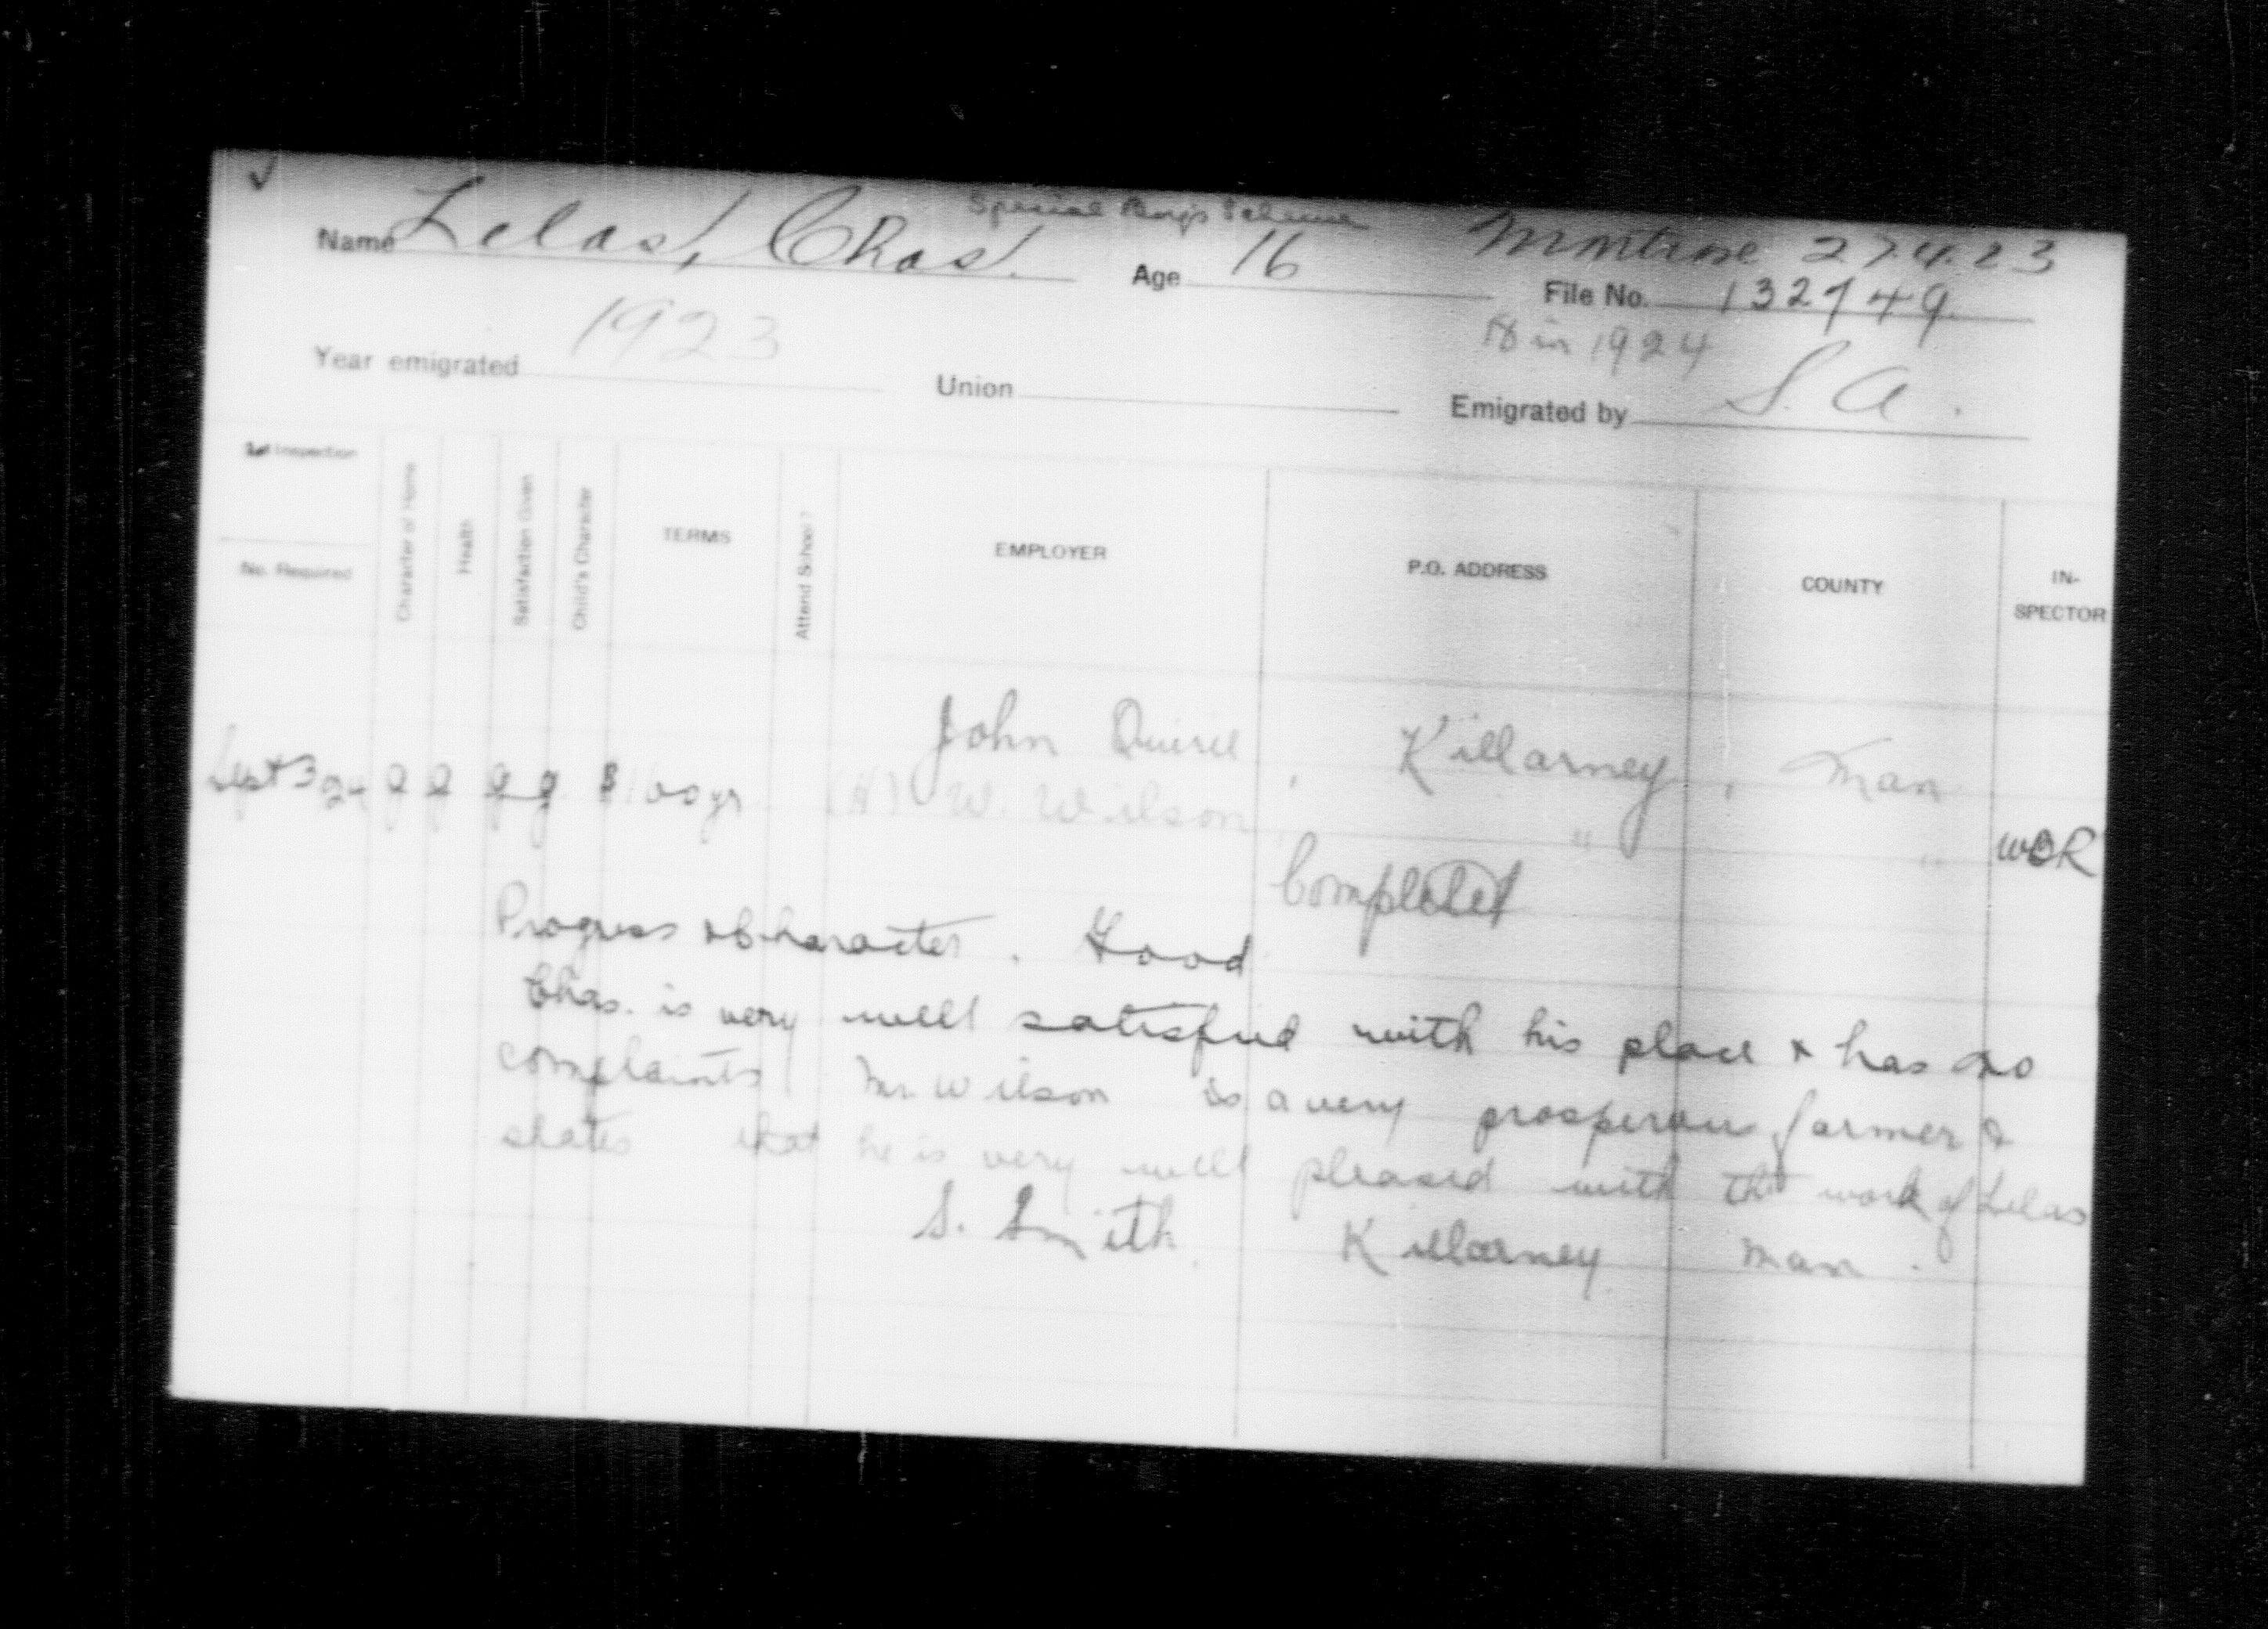 Special Boys Scheme
Name Lelas, Chas. Age 16 Montrose 27.4.23
File No. 132749
18 in 1924
Year emigrated 1923 Union Emigrated by S. A.
Inspection
No. Required
Character of Home
Health
Satisfaction Given
Child's Character
TERMS
Attend School?
EMPLOYER
P.O. ADDRESS
COUNTY
IN-
SPECTOR
John , Killarney , Man
Sept 3 24 g g g g $ 100 yr (H) W. Wilson, " " WOR
Completed
Progress & Character. Good
Chas. is very well satisfied with his place & has no
complaints Mr. Wilson is a very prosperous farmer &
states that he is very well pleased with the work of Lelas
S. Smith. Killarney Man.